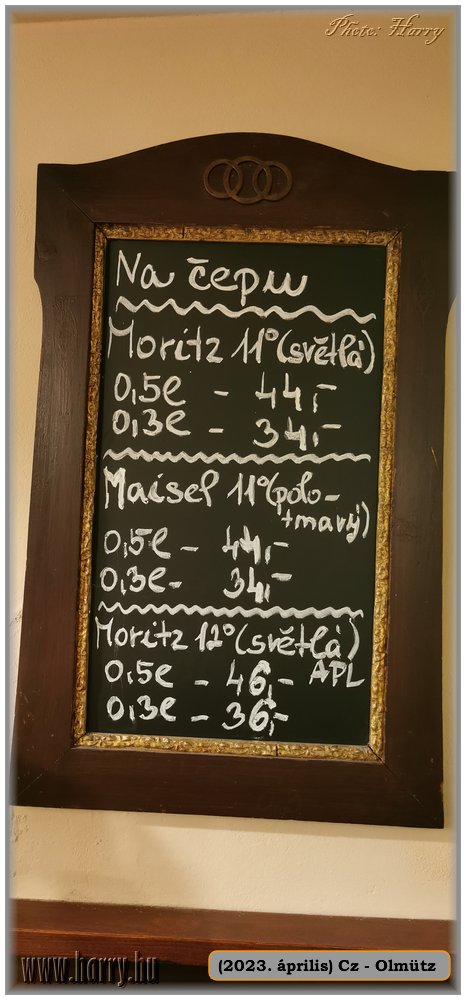 Photo: Harry
Na čepu
Moritz 11°(světlá)
0,5l - 44,-
0,3l - 34,-
Maisel 11°(polo-
tmavý)
0,5l - 44,-
0,3l- 34,-
Moritz 12°(světlá)
APL
0,5l - 46,-
0,3l - 36,-
www.harry.hu
(2023. április) Cz - Olmütz